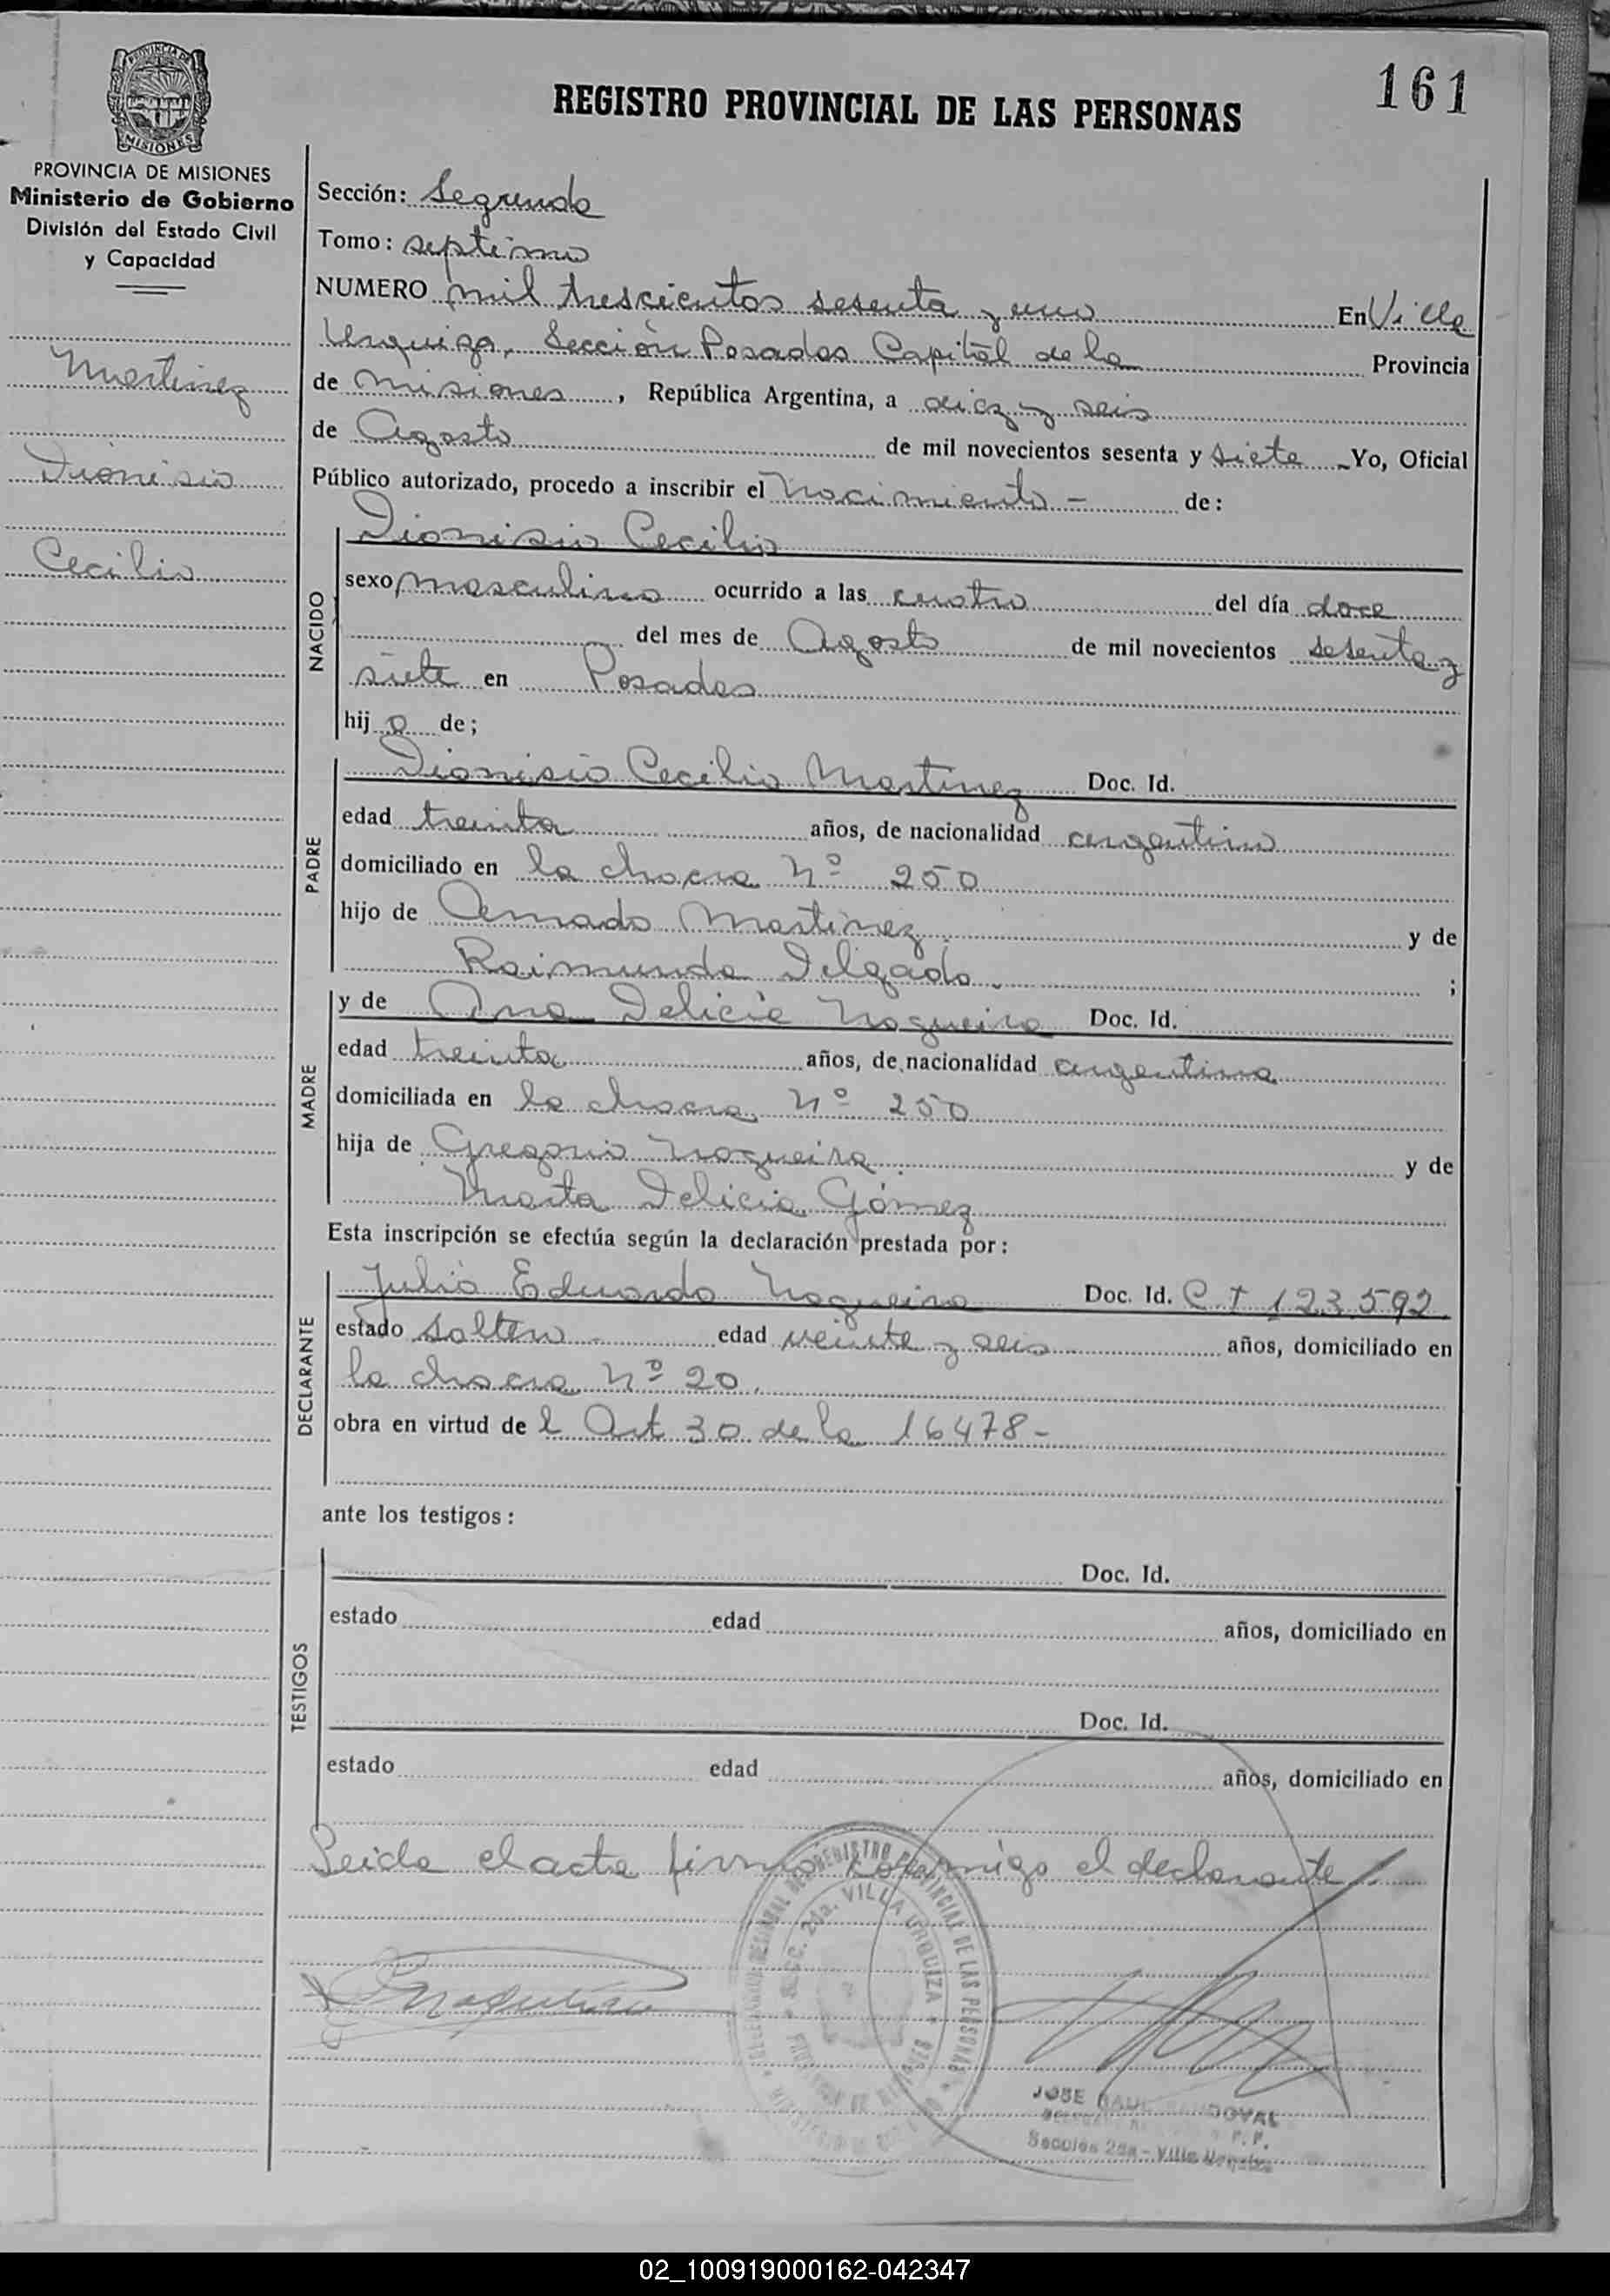 161
REGISTRO PROVINCIAL DE LAS PERSONAS
PROVINCIA DE
MISIONES
PROVINCIA DE MISIONES
Ministerio de Gobierno
División del Estado Civil
y Capacidad
Martinez
Dionisio
Cecilio
Sección: Segunda
Tomo: septimo
NUMERO mil trescientos sesenta y uno En Villa
Urquiza, Sección Posadas Capital de la Provincia
de Misiones, República Argentina, a diez y seis
de Agosto de mil novecientos sesenta y siete Yo, Oficial
Público autorizado, procedo a inscribir el Nacimiento - de:
NACIDO
Dionisio Cecilio
sexo masculino ocurrido a las cuatro del día doce
del mes de Agosto de mil novecientos sesenta y
siete en Posadas
hijo de;
PADRE
Dionisio Cecilio Martinez Doc. Id.
edad treinta años, de nacionalidad argentino
domiciliado en la chacra Nº 250
hijo de Amado Martinez y de
Raimunda Delgado ;
MADRE
y de Ana Delicia Nogueira Doc. Id.
edad treinta años, de nacionalidad argentina
domiciliada en la chacra Nº 250
hija de Gregorio Nogueira y de
Marta Delicia Gómez
Esta inscripción se efectúa según la declaración prestada por:
DECLARANTE
Julio Eduardo Nogueira Doc. Id. C I 123.592
estado soltero - edad veinte y seis años, domiciliado en
la chacra Nº 20.
obra en virtud del Art 30 de la 16478-
ante los testigos:
TESTIGOS
Doc. Id.
estado edad años, domiciliado en
Doc. Id.
estado edad años, domiciliado en
Leida el acta firma conmigo el declarante
REGISTRO PROVINCIAL DE LAS PERSONAS
SECC. 2da. VILLA URQUIZA
JOSE RAUL SANDOVAL
Sección 2da - Villa Urquiza
02_100919000162-042347